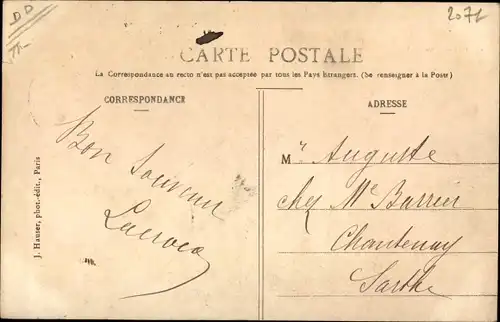 DD
2071
CARTE POSTALE
La Correspondance au recto n'est pas acceptée par tous les Pays Étrangers. (Se renseigner à la Poste)
CORRESPONDANCE
Bon Souvenir
J. Hauser, phot.-édit., Paris
ADRESSE
M Auguste
chez Mr Barrier
Chantenay
Sarthe